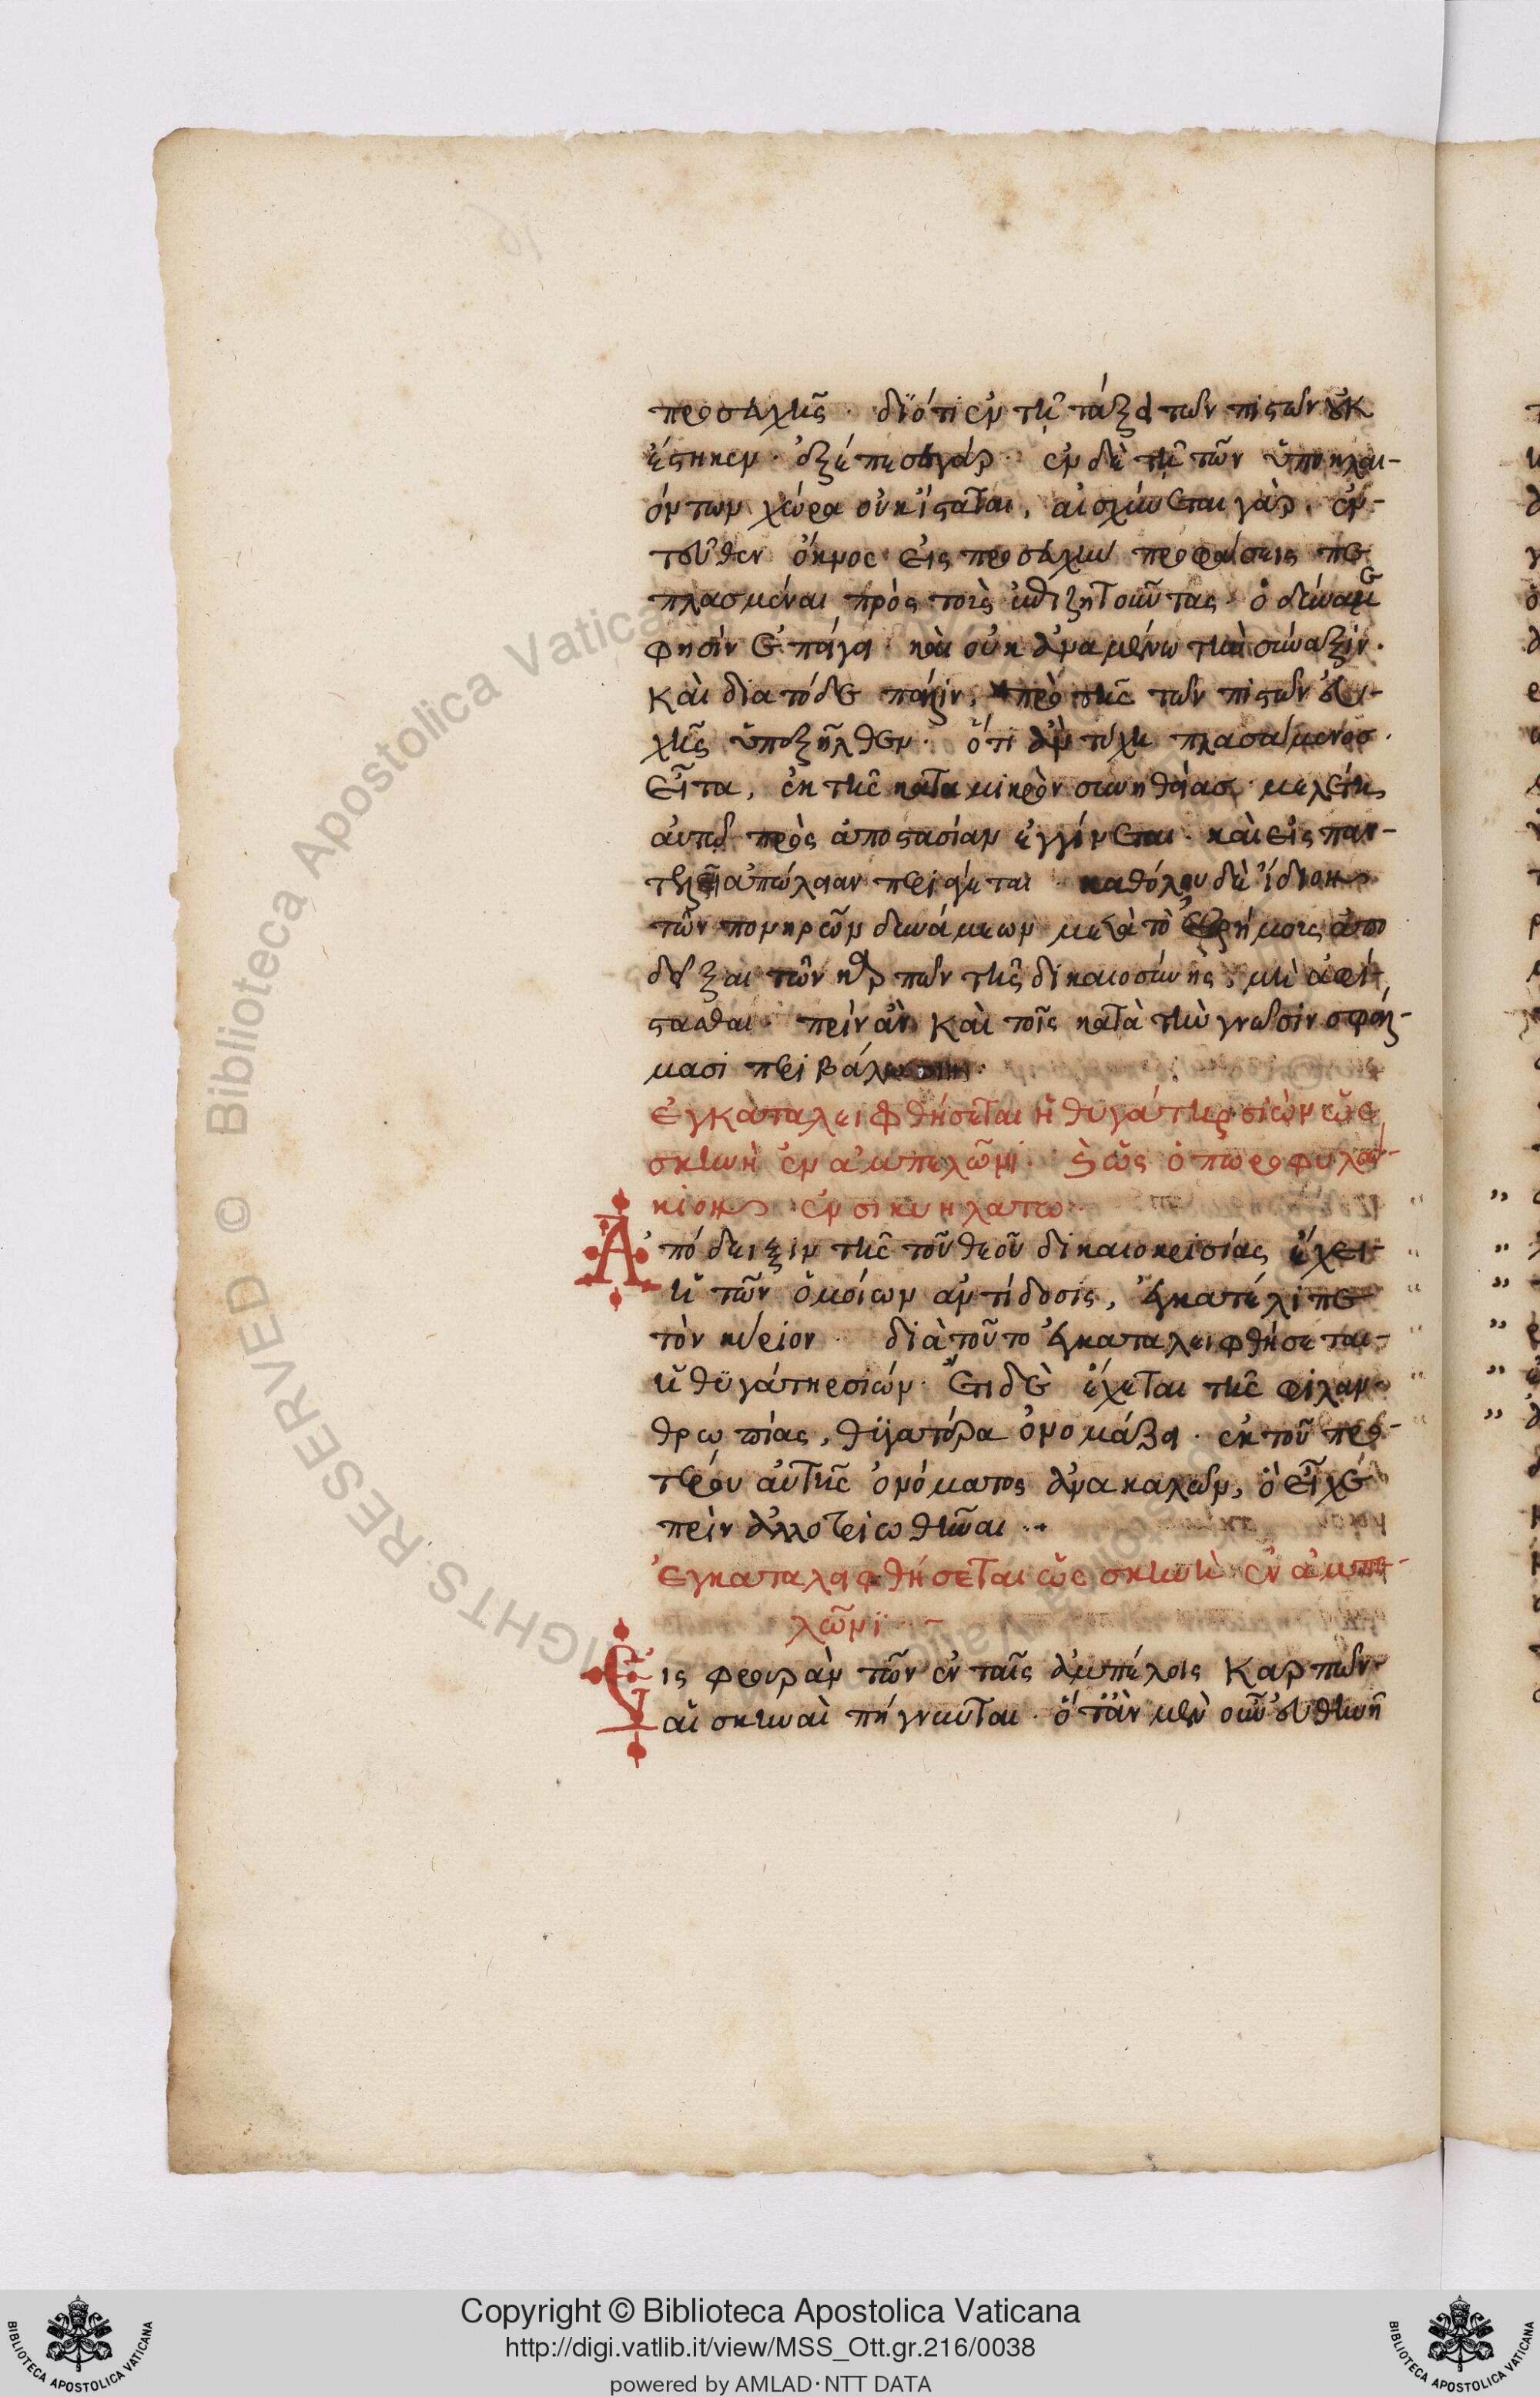 προσευχῆς· διότι ἐν τῆ τάξει των πιστων οὐκ
ἔστηκεν· ἐξέπεσε γάρ· ἐν δὲ τῆ τῶν ὑποκλαι-
όντων χώρα οὐκ ἵσταται, αἰσχύνεται γάρ. ἐν-
τοῦθεν ὄκνος εἰς προσευχὴν προφάσεις πε
πλασμέναι πρὸς τοὺς ἐπιζητοῦντας· ὁ δεῖνα με
φησὶν ἐπάγει· καὶ οὐκ ἀναμένω τὴν σύναξιν.
Καὶ διὰ τόδε πάλιν, πρὸ τῆς των πιστων εὐ-
χῆς ὑπεξῆλθεν· ὅτι ἂν τύχη πλασάμενος.
Εἶτα, ἐκ τῆς κατα μικρὸν συνηθείας μελέτη
αὐτῶ πρὸς ἀποστασίαν ἐγγίνεται· καὶ εἰς παν-
τελῆ ἀπώλειαν περιάγεται· καθόλου δὲ ἴδιον
τῶν πονηρῶν δυνάμεων μετὰ τὸ ἐρήμους ἀπο
δεῖξαι τῶν καρπῶν τῆς δικαιοσύνης, μὴ ἀφί-
στασθαι· πρὶν ἂν Καὶ τοῖς κατὰ τὴν γνῶσιν σφάλ-
μασι περιβάλωσιν·
ἐγκαταλειφθήσεται ἡ θυγάτηρ σιὼν ὡς
σκηνὴ ἐν ἀμπελῶνι· καὶ ὡς ὀπωροφυλά-
κιον ἐν σικυηλάτω·
Ἀπόδειξιν τῆς τοῦ θεοῦ δικαιοκρισίας ἔχει-
ἡ τῶν ὁμοίων ἀντίδοσις, ἐγκατέλιπε
τὸν κύριον· διὰ τοῦτο ἐγκαταλειφθήσεται-
ἡ θυγάτηρ σιών· Ἔτι δὲ ἔχεται τῆς φιλαν-
θρωπίας, θυγατέρα ὀνομάζει· ἐκ τοῦ προ-
τέρου αὐτῆς ὀνόματος ἀνακαλῶν, ὃ εἶχε
πρὶν ἀλλοτριωθῆναι··
Ἐγκαταλειφθήσεται ὡς σκηνὴ ἐν ἀμπε-
λῶνι·
Εἰς φρουρὰν τῶν ἐν ταῖς ἀμπέλοις Καρπῶν
αἱ σκηναὶ πήγνυνται· ὅταν μὲν οὖν εὐθηνῆ
Copyright © Biblioteca Apostolica Vaticana
http://digi.vatlib.it/view/MSS_Ott.gr.216/0038
powered by AMLAD·NTT DATA